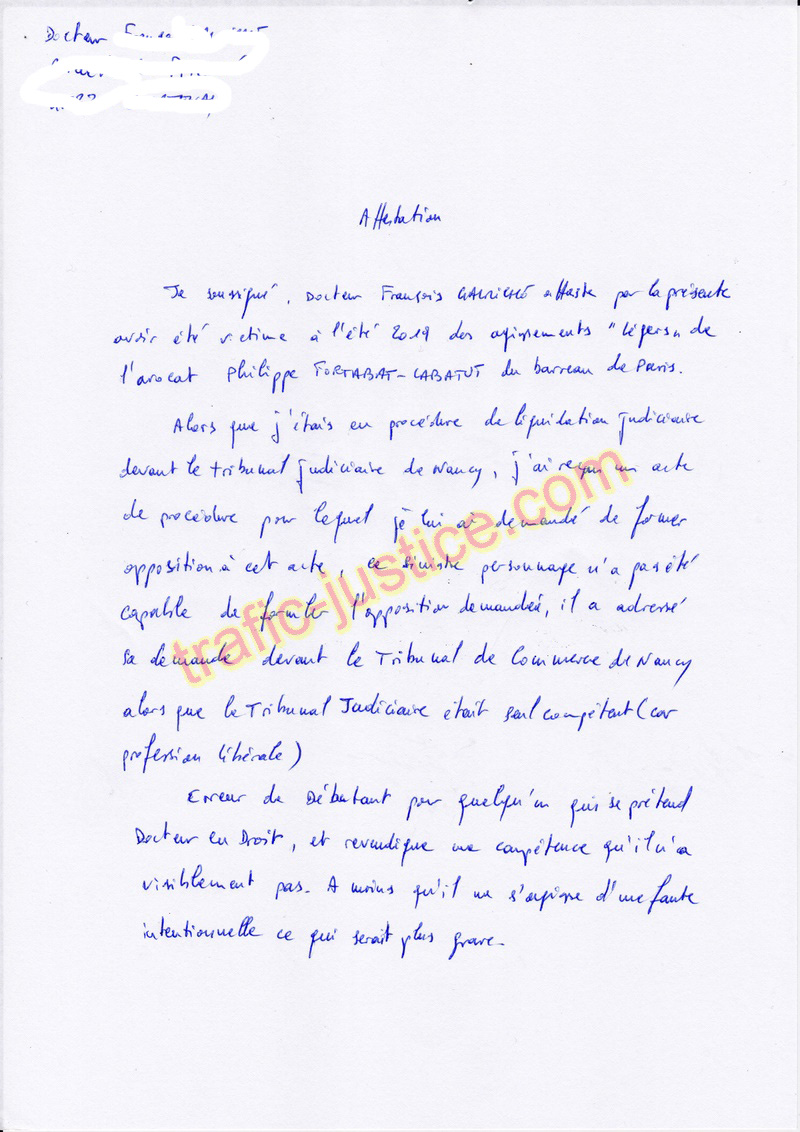 Docteur
Attestation
Je soussigné, Docteur François atteste par la présente
avoir été victime à l'été 2019 des agissements "légers" de
l'avocat Philippe FORTABAT-LABATUT du barreau de Paris.
Alors que j'étais en procédure de liquidation judiciaire
devant le Tribunal judiciaire de Nancy, j'ai reçu un acte
de procédure pour lequel je lui ai demandé de former
opposition à cet acte, ce sinistre personnage n'a pas été
capable de formuler l'opposition demandée, il a adressé
sa demande devant le Tribunal de Commerce de Nancy
alors que le Tribunal Judiciaire était seul compétent (car
profession libérale)
Erreur de Débutant pour quelqu'un qui se prétend
Docteur en Droit, et revendique une compétence qu'il n'a
visiblement pas. A moins qu'il ne s'agisse d'une faute
intentionnelle ce qui serait plus grave.
trafic-justice.com